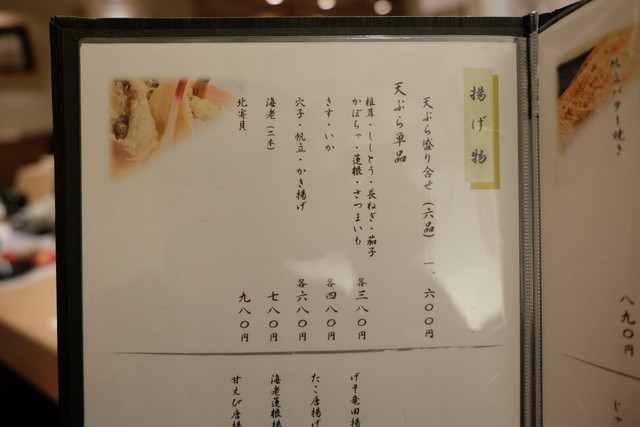 揚げ物
天ぷら盛り合せ（六品） 一、六〇〇円
天ぷら単品
椎茸・ししとう・長ねぎ・茄子
かぼちゃ・蓮根・さつまいも 各三八〇円
きす・いか 各四八〇円
穴子・帆立・かき揚げ 各六八〇円
海老（二本） 七八〇円
北寄貝 九八〇円
げそ竜田揚
たこ唐揚げ
海老蓮根揚
甘えび唐揚
帆立バター焼き
八九〇円
じゃ